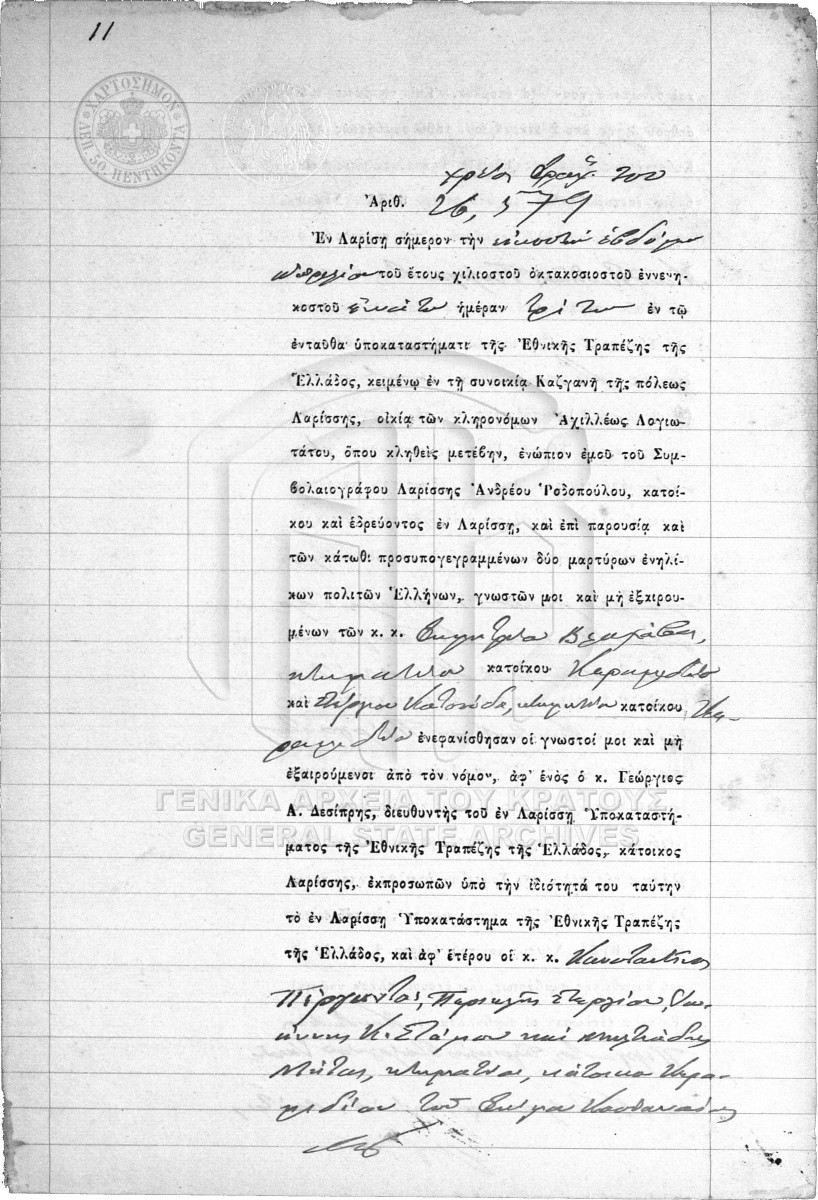 11
ΧΑΡΤΟΣΗΜΟΝ
ΛΕΠ. 50. ΠΕΝΤΗΚΟΝΤΑ
χρέος δραχ.
Ἀριθ. 26,579
Ἐν Λαρίσῃ σήμερον τὴν εἰκοστὴν ἑβδόμην
Ἀπριλίου τοῦ ἔτους χιλιοστοῦ ὀκτακοσιοστοῦ ἐννενη-
κοστοῦ ἐνάτου ἡμέραν Τρίτην ἐν τῷ
ἐνταῦθα ὑποκαταστήματι τῆς Ἐθνικῆς Τραπέζης τῆς
Ἑλλάδος, κειμένῳ ἐν τῇ συνοικίᾳ Καζγανῆ τῆς πόλεως
Λαρίσσης, οἰκίᾳ τῶν κληρονόμων Ἀχιλλέως Λογιω-
τάτου, ὅπου κληθεὶς μετέβην, ἐνώπιον ἐμοῦ τοῦ Συμ-
βολαιογράφου Λαρίσσης Ἀνδρέου Ῥοδοπούλου, κατοί-
κου καὶ ἑδρεύοντος ἐν Λαρίσσῃ, καὶ ἐπὶ παρουσίᾳ καὶ
τῶν κάτωθι προσυπογεγραμμένων δύο μαρτύρων ἐνηλί-
κων πολιτῶν Ἑλλήνων, γνωστῶν μοι καὶ μὴ ἐξαιρου-
μένων τῶν κ. κ. Δημητρίου
κτηματίου κατοίκου
καὶ Στέργιου κτηματίου κατοίκου Κε-
ἐνεφανίσθησαν οἱ γνωστοί μοι καὶ μὴ
ἐξαιρούμενοι ἀπὸ τὸν νόμον, ἀφ' ἑνὸς ὁ κ. Γεώργιος
Α. Δεσίπρης, διευθυντὴς τοῦ ἐν Λαρίσσῃ Ὑποκαταστή-
ματος τῆς Ἐθνικῆς Τραπέζης τῆς Ἑλλάδος, κάτοικος
Λαρίσσης, ἐκπροσωπῶν ὑπὸ τὴν ἰδιότητά του ταύτην
τὸ ἐν Λαρίσσῃ Ὑποκατάστημα τῆς Ἐθνικῆς Τραπέζης
τῆς Ἑλλάδος, καὶ ἀφ' ἑτέρου οἱ κ. κ. Κωνσταντῖνος
Περικλῆς Στεργίου, Ἰω-
άννης Κ. Στάμου καὶ Μιλτιάδης
κτηματίαι, κάτοικοι Κερα-
μιδίου τοῦ Δήμου
ΓΕΝΙΚΑ ΑΡΧΕΙΑ ΤΟΥ ΚΡΑΤΟΥΣ
GENERAL STATE ARCHIVES